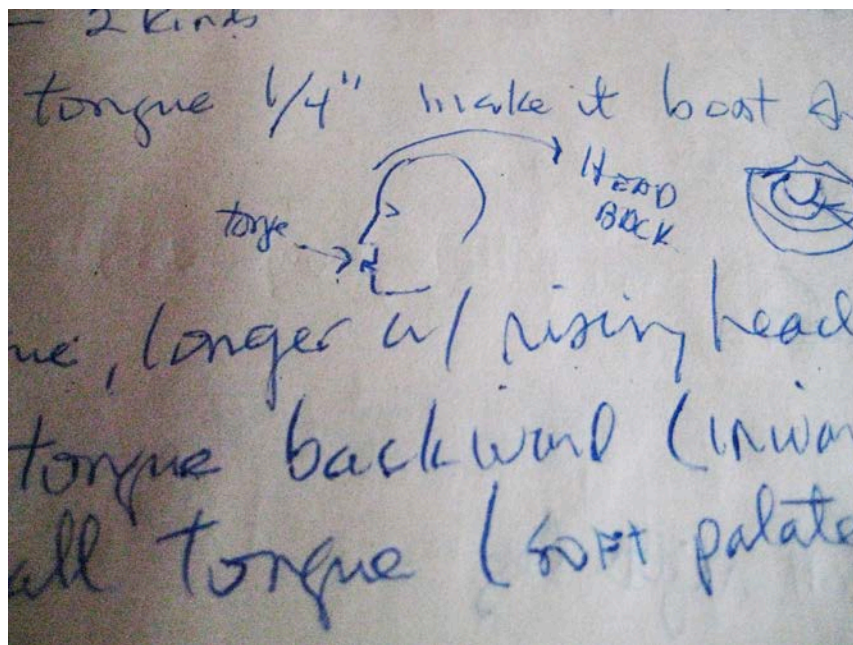 - 2 kinds
tongue 1/4" make it boat
HEAD
BACK
tonge
, longer w/ rising head
tongue backward (inwar
all tongue (soft palate